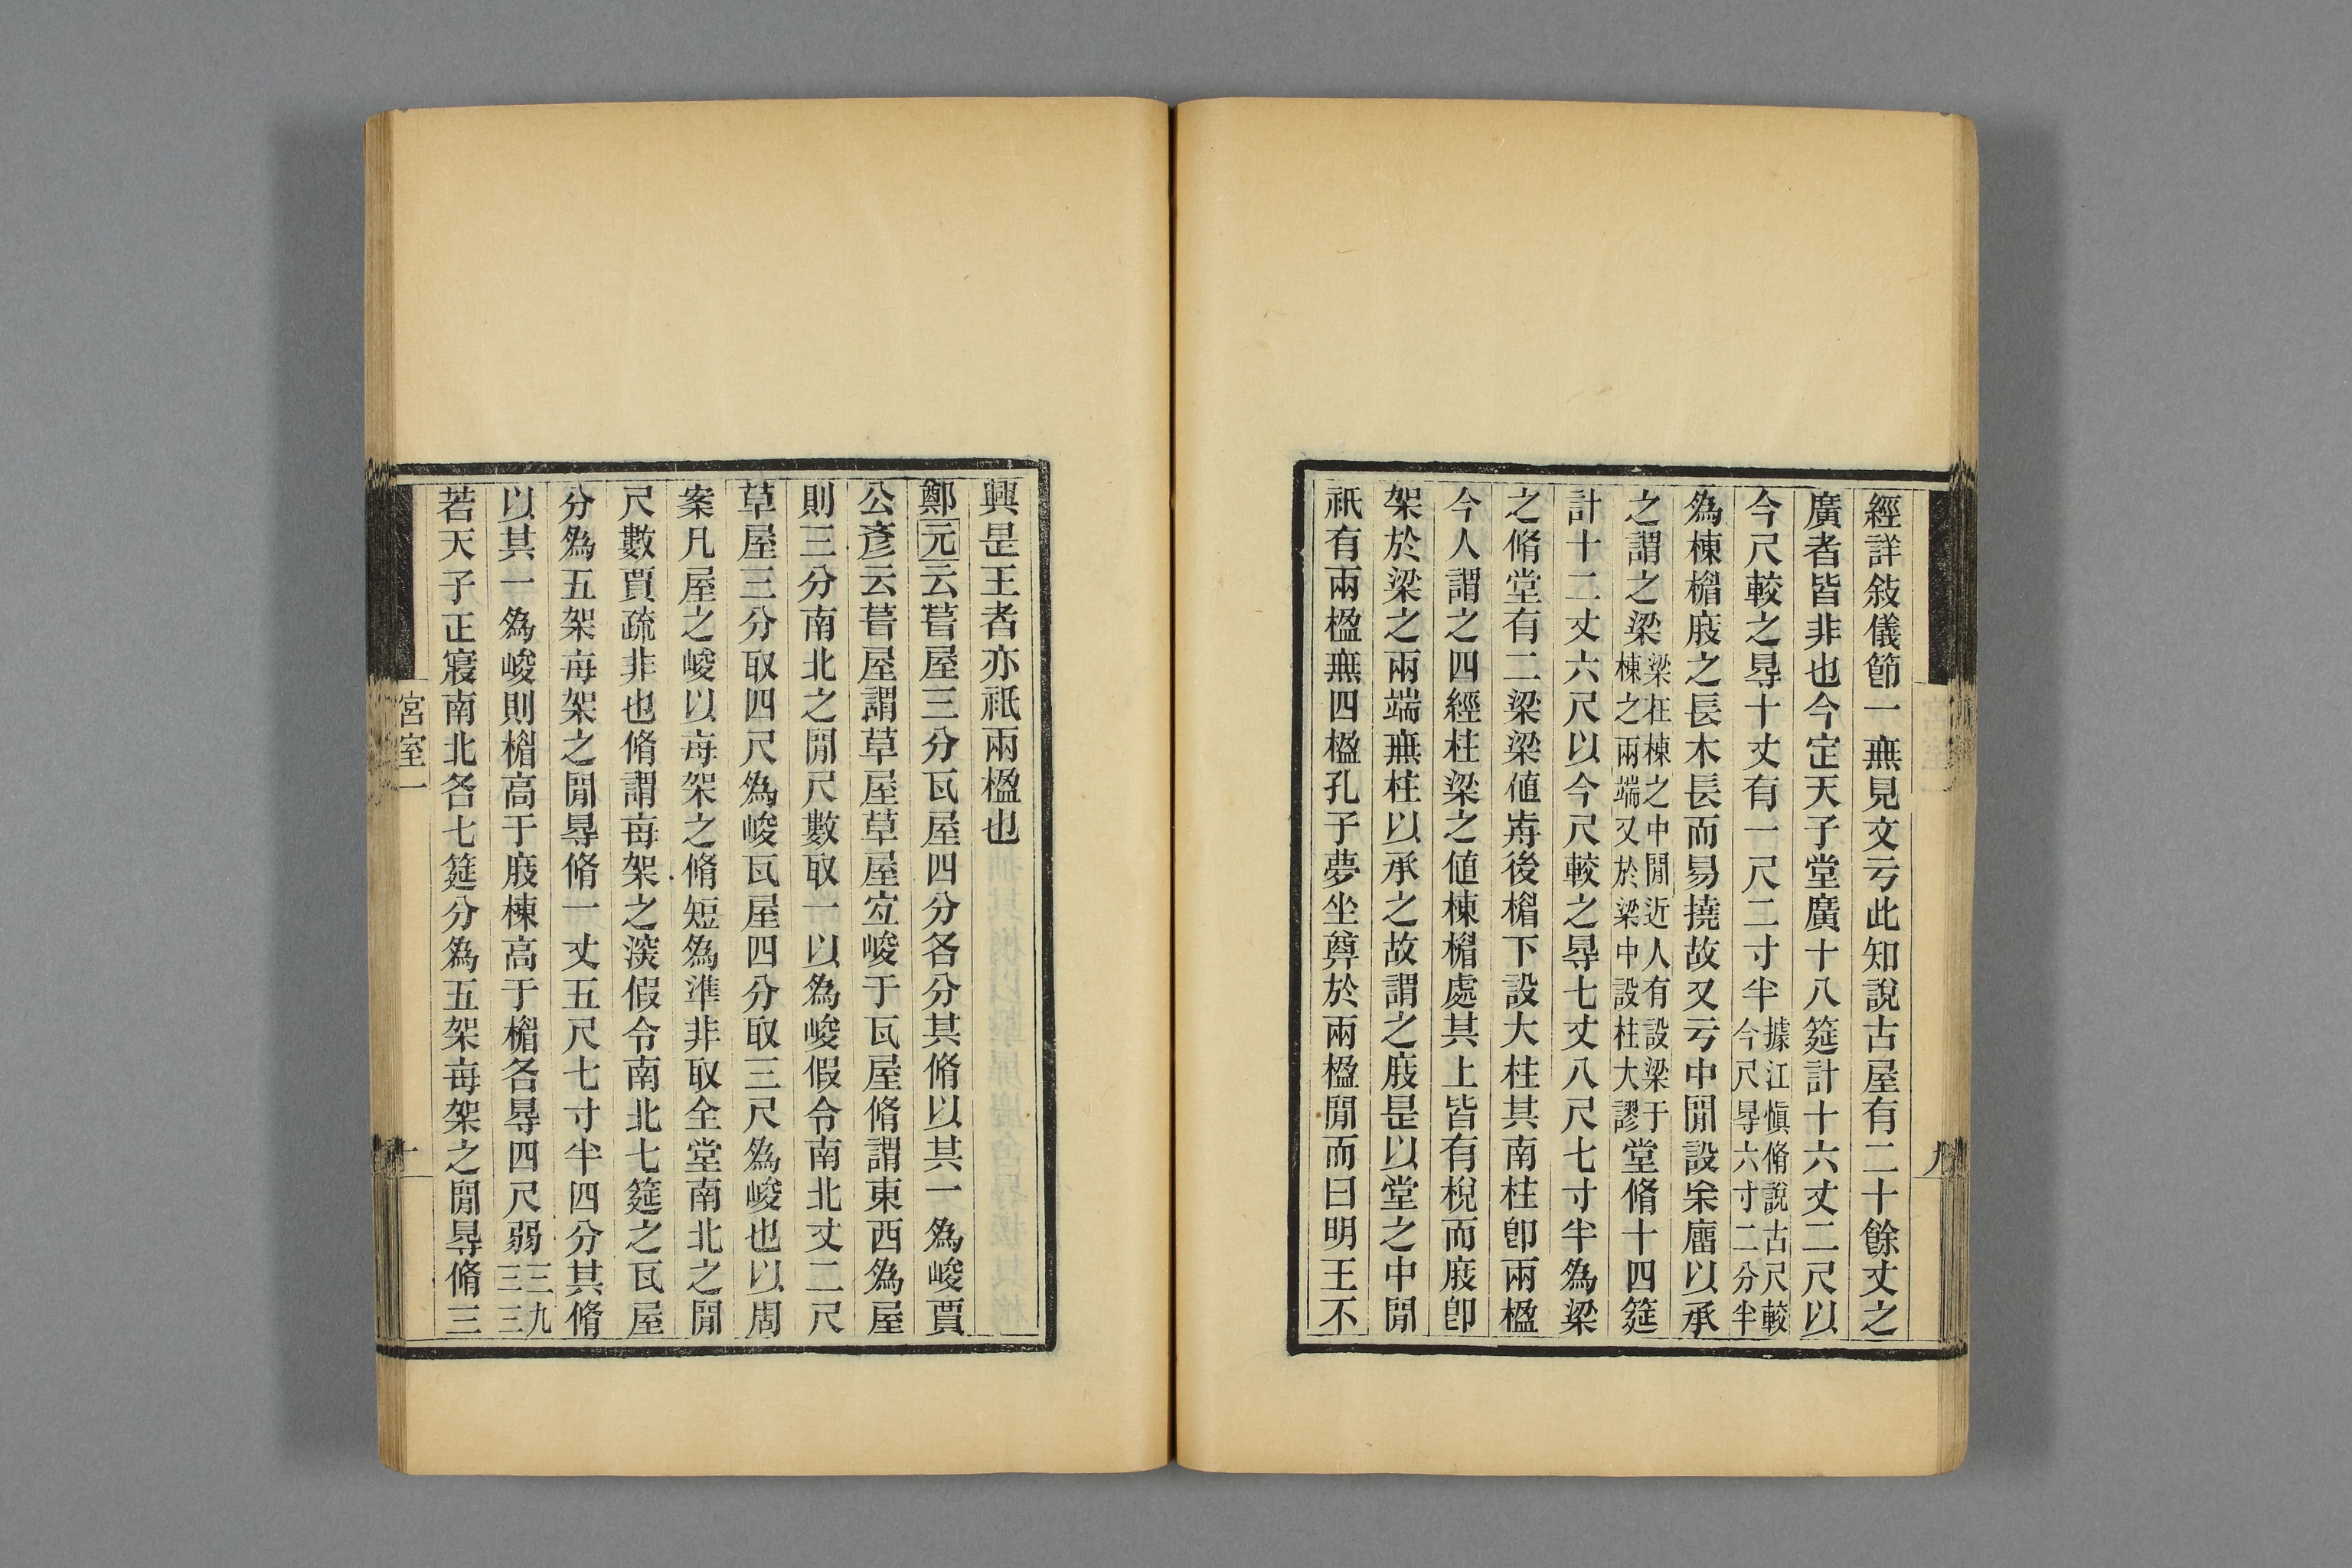 經詳敍儀節一無見文亏此知說古屋有二十餘丈之
廣者皆非也今定天子堂廣十八筵計十六丈二尺以
今尺較之㝵十丈有一尺二寸半據江愼脩說古尺較今尺㝵六寸二分半
爲棟楣庪之長木長而易撓故又亏中閒設㭉廇以承
之謂之梁梁在棟之中閒近人有設梁于棟之兩端又於梁中設柱大謬堂脩十四筵
計十二丈六尺以今尺較之㝵七丈八尺七寸半爲梁
之脩堂有二梁梁値歬後楣下設大柱其南柱卽兩楹
今人謂之四經柱梁之値棟楣處其上皆有梲而庪卽
架於梁之兩端無柱以承之故謂之庪是以堂之中閒
祇有兩楹無四楹孔子夢坐奠於兩楹閒而曰明王不
九
興是王者亦祇兩楹也
鄭元云葺屋三分瓦屋四分各分其脩以其一爲峻賈
公彥云葺屋謂草屋草屋宐峻于瓦屋脩謂東西爲屋
則三分南北之閒尺數取一以爲峻假令南北丈二尺
草屋三分取四尺爲峻瓦屋四分取三尺爲峻也以周
案凡屋之峻以每架之脩短爲準非取全堂南北之閒
尺數賈疏非也脩謂每架之深假令南北七筵之瓦屋
分爲五架每架之閒㝵脩一丈五尺七寸半四分其脩
以其一爲峻則楣高于庪棟高于楣各㝵四尺弱三九三三
若天子正寢南北各七筵分爲五架每架之閒㝵脩三
宮室一
十